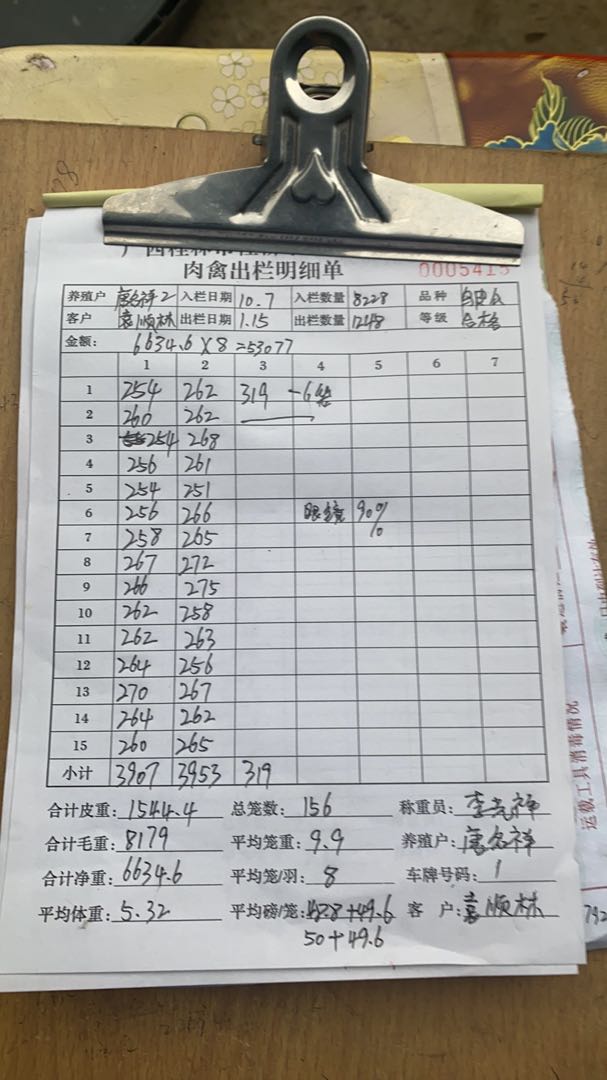 肉禽出栏明细单
0005413
养殖户 唐名祥2 入栏日期 10.7 入栏数量 8228 品种
客户 袁顺林 出栏日期 1.15 出栏数量 1248 等级 合格
金额: 6634.6×8=53077
1 2 3 4 5 6 7
1 254 262 319 -6笼
2 260 262
3 254 268
4 256 261
5 254 251
6 256 266 眼镜 90%
7 258 265
8 267 272
9 266 275
10 262 258
11 262 263
12 264 256
13 270 267
14 264 262
15 260 265
小计 3907 3953 319
合计皮重: 1544.4 总笼数: 156 称重员:
合计毛重: 8179 平均笼重: 9.9 养殖户: 唐名祥
合计净重: 6634.6 平均笼/羽: 8 车牌号码: 1
平均体重: 5.32 平均磅/笼: +49.6 客 户: 袁顺林
50+49.6
运载工具消毒情况